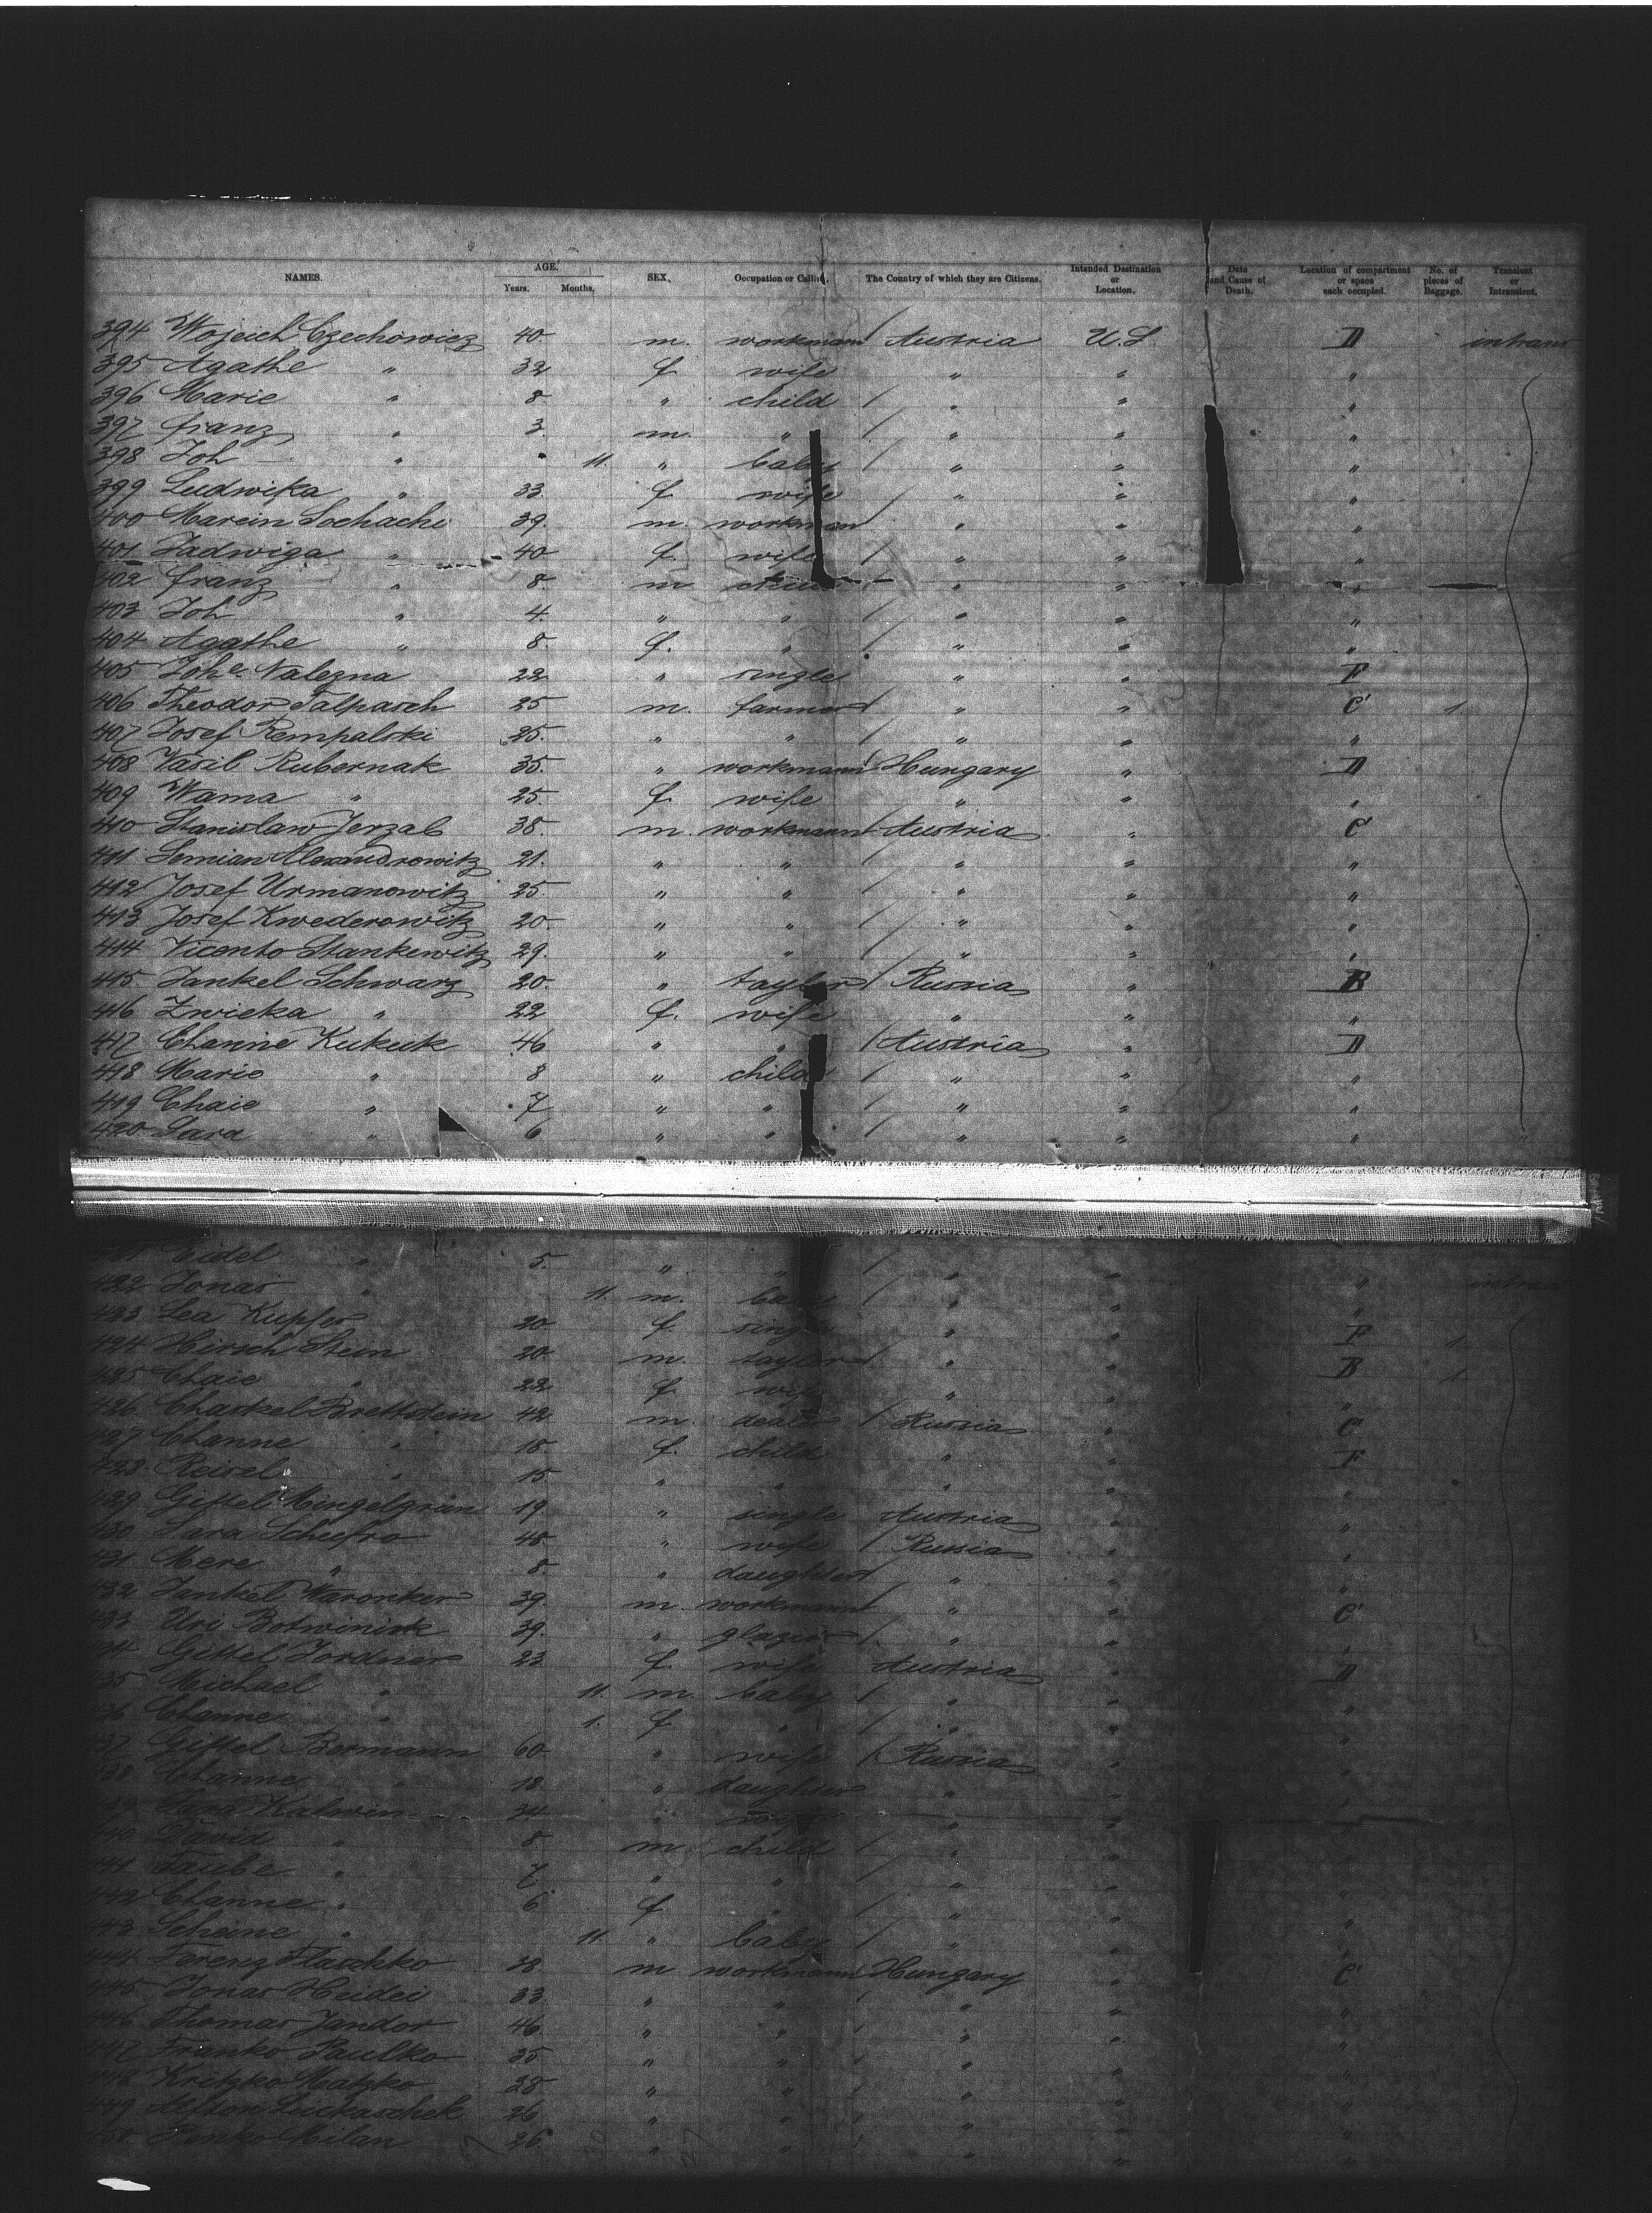 NAMES. AGE. Years. Months. SEX. Occupation or Calling. The Country of which they are Citizens. Intended Destination or Location. Date and Cause of Death. Location of compartment or space each occupied. No. of pieces of Baggage. Transient or Intransient.
394 Wojcich Czechowicz 40 m. workmann / Austria U.S. D intrans
395 Agathe " 32 f. wife " " "
396 Marie " 8 " child / " " "
397 Franz " 3 m. " / " " "
398 Joh " 11. " baby / " " "
399 Ludwika " 33 f. wife / " " "
400 Marcin Sochacki 39. m. workman " " "
401 Jadwiga " 40 f. wife / " " "
402 Franz " 8. m child " " "
403 Joh " 4. " " / " " "
404 Agathe " 8. f. " / " " "
405 Johe. Nalezna 22 " single " " F
406 Theodor Talpasch 25 m. farmer " " C 1
407 Josef Rempalski 25. " " / " " "
408 Vasil Rubernak 35. " workmann Hungary " D
409 Wama " 25. f. wife " " "
410 Stanislaw Jerzab 38. m. workmann Austria " C
411 Semian Alexandrowitz 21. " " / " " "
412 Josef Urmanowitz 25. " " / " " "
413 Josef Kwederowitz 20. " " / " " "
414 Vicento Stankewitz 29. " " / " " "
415 Jankel Schwarz 20. " taylor / Russia " B
416 Zwicka " 22 f. wife " " "
417 Channe Kukuk 46 " " / Austria " D
418 Marie " 8 " child / " " "
419 Chaie " 7 " " / " " "
420 Sara " 6 " " / " " " "
421 Eidel " 5. " " / " " " intrans
422 Jonas " 11. m. baby / " " "
423 Lea Kupfer 20 f. single " " F 1
424 Hirsch Stein 20. m. taylor / " " B 1
425 Chaie " 22 f. wife " " "
426 Chaskel Brettstein 42 m. dealer / Russia " C
427 Channe " 18. f. child " " F
428 Reisel " 15 " " " " "
429 Gittel Mingelgrün 19. " single Austria " "
430 Sara Schefro 48. " wife / Russia " "
431 Mere " 8. " daughter / " " "
432 Jankel Waronker 39. m. workmann " " C
433 Uri Botwinisk 39. " glazier / " " "
434 Gittel Jordner 23 f. wife Austria " D
435 Michael " 11. m. baby / " " "
436 Channe " 1. f " / " " "
437 Gittel Bermann 60. " wife / Russia " "
438 Channe " 18. " daughter " " "
439 Sara Kalwin 34. " wife " " "
440 David " 8 m child / " " "
441 Taube " 7 " " / " " "
442 Channe " 6 f " / " " "
443 Scheine " 11. " baby / " " "
444 Ferenz Flaschko 38 m workmann Hungary " C
445 Jonas Heidei 33 " " / " " "
446 Thomas Jandor 46 " " / " " "
447 Franko Paulko 35 " " / " " "
448 Kritzko Matzko 28 " " " " "
449 Luckaschek 26 " " " " "
450 Milan 26 " " " " "